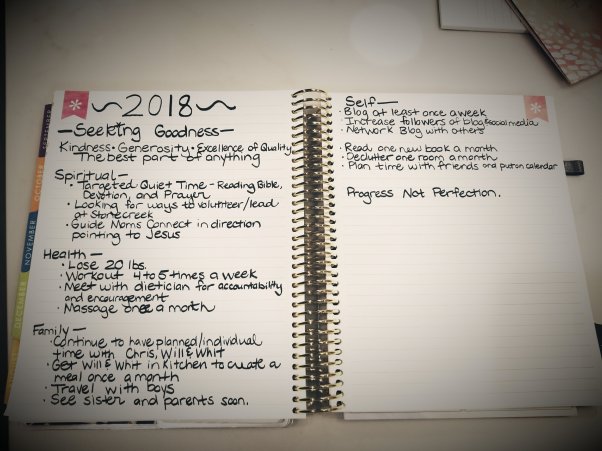 ~2018~
—Seeking Goodness—
Kindness • Generosity • Excellence of Quality
The best part of anything
Spiritual—
• Targeted Quiet Time - Reading Bible,
Devotion, and Prayer
• Looking for ways to volunteer/lead
at Stonecreek
• Guide Moms Connect in direction
pointing to Jesus
Health—
• Lose 20 lbs.
• Workout 4 to 5 times a week
• Meet with dietician for accountability
and encouragement
• Massage once a month
Family—
• Continue to have planned/individual
time with Chris, Will & Whit
• Get Will & Whit in Kitchen to create a
meal once a month
• Travel with boys
• See sister and parents soon.
SEPTEMBER
OCTOBER
NOVEMBER
DECEMBER
Self—
• Blog at least once a week
• Increase followers of blog & social media
• Network Blog with others
• Read one new book a month
• Declutter one room a month
• Plan time with friends and put on calendar
Progress Not Perfection.